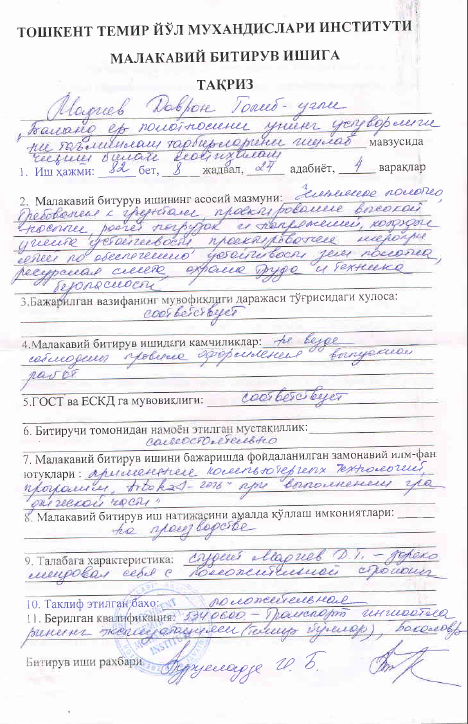 ТОШКЕНТ ТЕМИР ЙЎЛ МУХАНДИСЛАРИ ИНСТИТУТИ
МАЛАКАВИЙ БИТИРУВ ИШИГА
ТАҚРИЗ
Мадиев Даврон Голиб-угли
"Баланд ер полотносини унинг устуворлиги
ни таъминлаш тадбирларини ишлаб мавзусида
чиқиш билан
1. Иш ҳажми: 82 бет, 8 жадвал, 27 адабиёт, 4 варақлар
2. Малакавий битирув ишининг асосий мазмуни: Земляное полотно,
Требования к грунтам, проектирование высокой
насыпи, расчет нагрузок и напряжений,
устойчивости проектирование меропри
ятий по обеспечению устойчивости зем полотна,
ресурсная смета, охрана труда и техника
безопасности
3.Бажарилган вазифанинг мувофиқлиги даражаси тўғрисидаги хулоса:
соответствует
4.Малакавий битирув ишидаги камчиликлар: не везде
соблюдены правила оформления выпускной
работ
5.ГОСТ ва ЕСКД га мувовиқлиги: соответствует
6. Битирувчи томонидан намоён этилган мустақиллик:
самостоятельно
7. Малакавий битирув ишини бажаришда фойдаланилган замонавий илм-фан
ютуқлари : применение компьютерных технологий
программ, при выполнении гра
фической части"
8. Малакавий битирув иш натижасини амалда қўллаш имкониятлари:
на производстве
9. Талабага характеристика: студент Мадиев Д.Г. – зареко
мендовал себя с положительной стороны
10. Таклиф этилган баҳо: положительная
11. Берилган квалификация: 5340600 – Транспорт иншоотла
рининг эксплуатацияси (темир йуллар), бакалавр
Битирув иши раҳбари